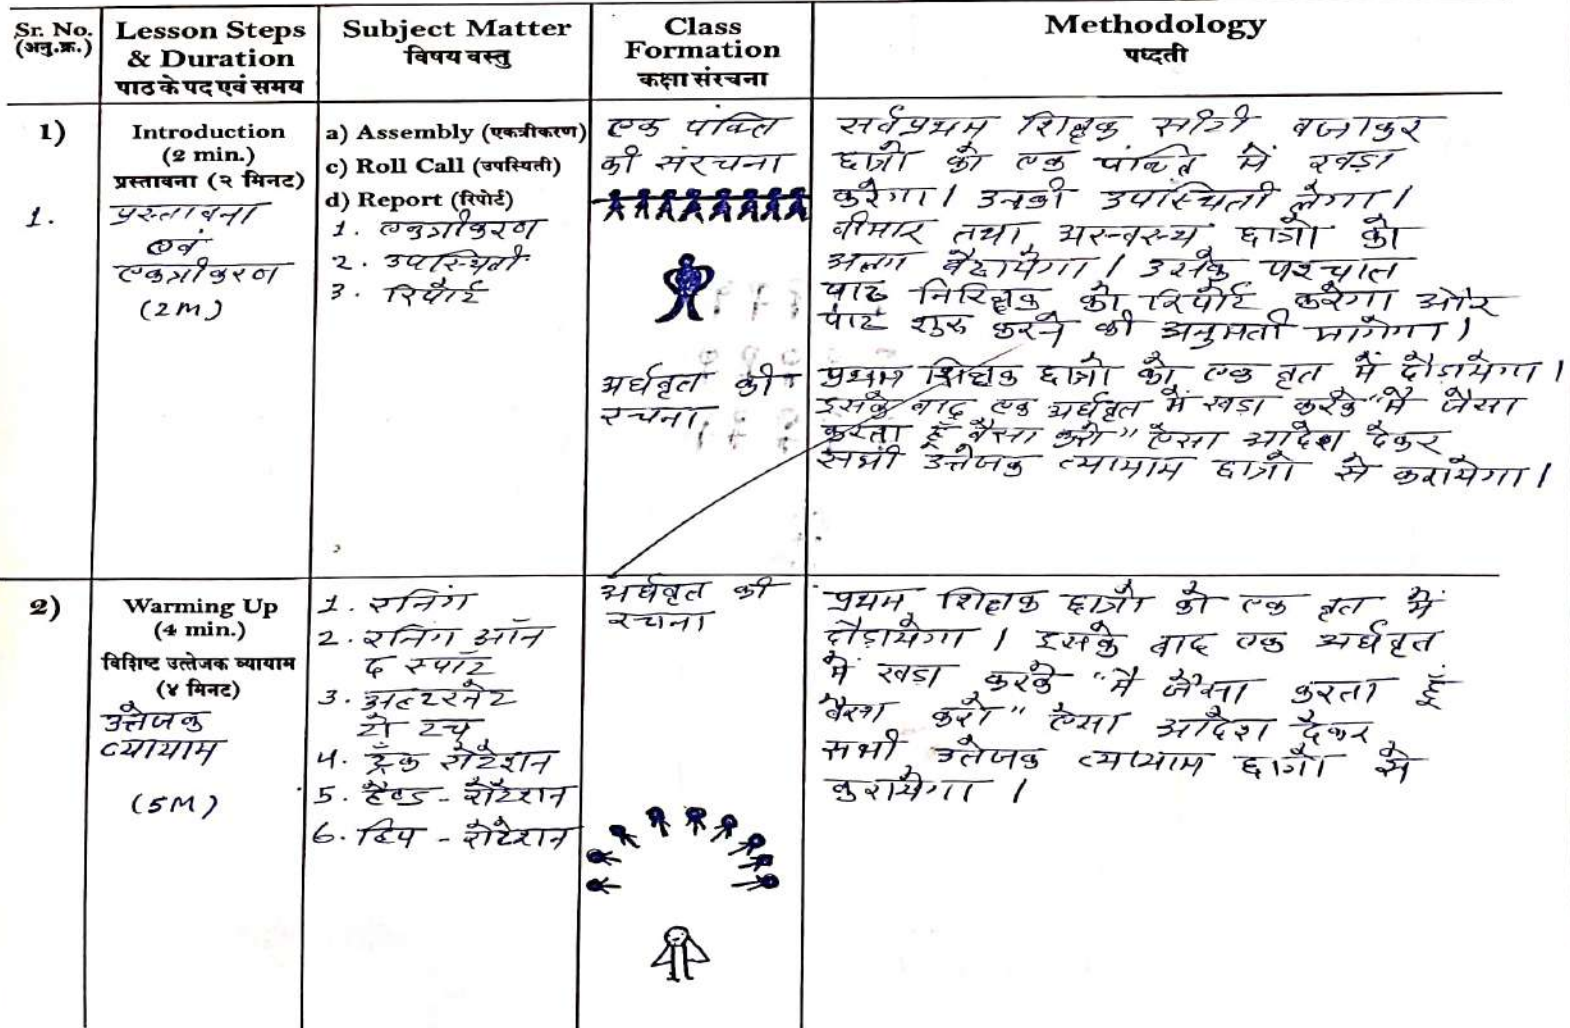 Sr. No. Lesson Steps Subject Matter Class Methodology
(अनु.क्र.) & Duration विषय वस्तु Formation पध्दती
पाठ के पद एवं समय कक्षा संरचना
1)
Introduction
(2 min.)
प्रस्तावना (२ मिनट)
1.
प्रस्तावना
एवं
एकत्रीकरण
(2M)
a) Assembly (एकत्रीकरण)
c) Roll Call (उपस्थिती)
d) Report (रिपोर्ट)
1. एकत्रीकरण
2. उपस्थिती
3. रिपोर्ट
एक पंक्ति
की संरचना
अर्धवृत की
रचना
सर्वप्रथम शिक्षक सीटी बजाकर
छात्रो को एक पंक्ति में खड़ा
करेगा। उनकी उपस्थिती लेगा।
बीमार तथा अस्वस्थ छात्रो को
अलग बैठायेगा। उसके पश्चात
पाठ निरिक्षक को रिपोर्ट करेगा और
पाठ शुरु करने की अनुमती मांगेगा।
प्रथम शिक्षक छात्रो को एक वृत में दौडायेगा।
इसके बाद एक अर्धवृत में खडा करके "मै जैसा
करता हूँ वैसा करो" ऐसा आदेश देकर
सभी उत्तेजक व्यायाम छात्रो से करायेगा।
2)
Warming Up
(4 min.)
विशिष्ट उत्तेजक व्यायाम
(४ मिनट)
उत्तेजक
व्यायाम
(5M)
1. रनिंग
2. रनिंग ऑन
द स्पॉट
3. अल्टरनेट
टो टच
4. ट्रँक रोटेशन
5. हैण्ड - रोटेशन
6. हिप - रोटेशन
अर्धवृत की
रचना
प्रथम शिक्षक छात्रो को एक वृत में
दौड़ायेगा। इसके बाद एक अर्धवृत
में खडा करके "मै जैसा करता हूँ
वैसा करो" ऐसा आदेश देकर
सभी उतेजक व्यायाम छात्रो से
करायेगा।